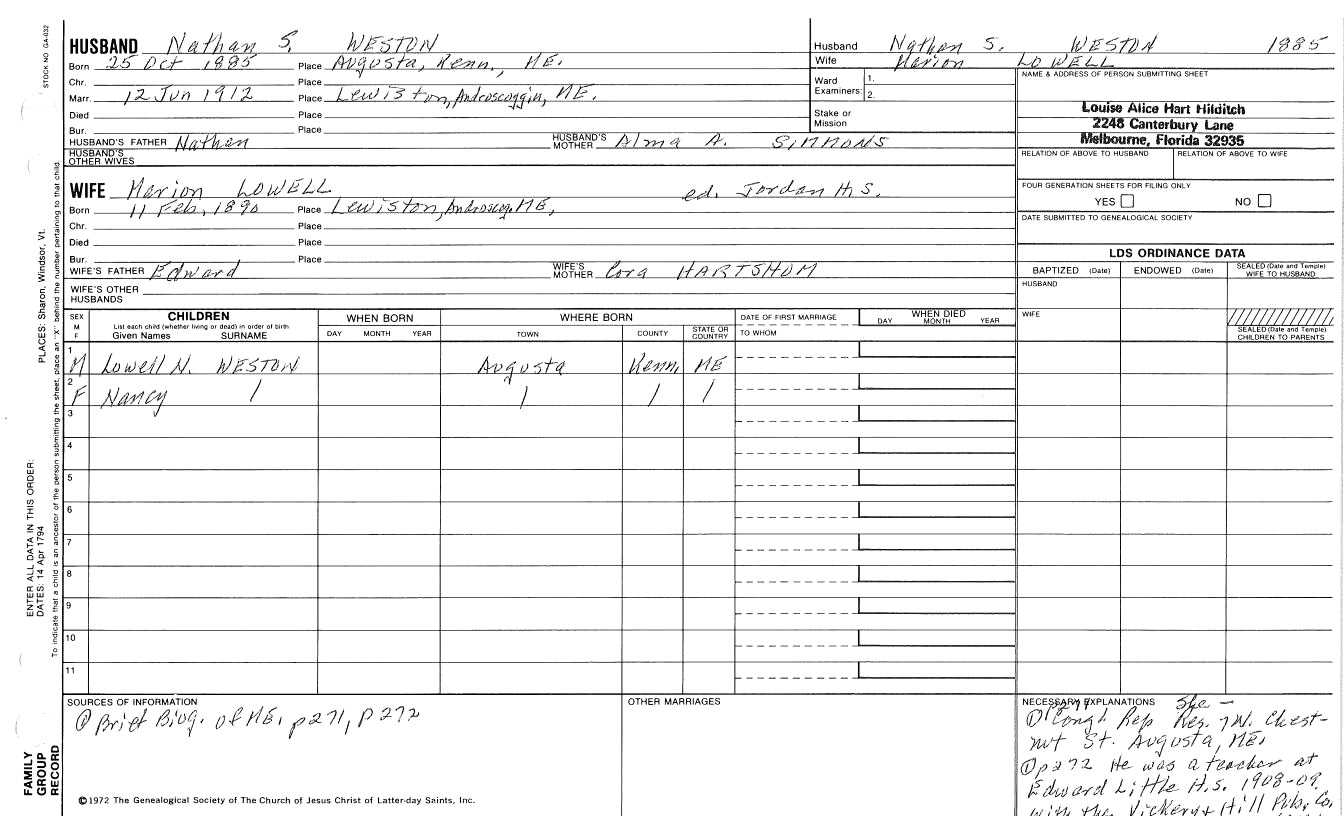 STOCK NO. GA-032
PLACES: Sharon, Windsor, Vt.
ENTER ALL DATA IN THIS ORDER:
DATES: 14 Apr 1794
To indicate that a child is an ancestor of the person submitting the sheet, place an "X" behind the number pertaining to that child
FAMILY GROUP RECORD
HUSBAND Nathan S. WESTON
Born 25 Oct 1885 Place Augusta, Kenn., ME.
Chr. Place
Marr. 12 Jun 1912 Place Lewiston, Androscoggin, ME.
Died Place
Bur. Place
HUSBAND'S FATHER Nathan HUSBAND'S MOTHER Alma A. SIMMONS
HUSBAND'S OTHER WIVES
WIFE Marion LOWELL ed. Jordan H.S.
Born 11 Feb, 1890 Place Lewiston, Androscog, ME,
Chr. Place
Died Place
Bur. Place
WIFE'S FATHER Edward WIFE'S MOTHER Cora HARTSHOM
WIFE'S OTHER HUSBANDS
Husband Nathan S. WESTON 1885
Wife Marion LOWELL
Ward Examiners: 1.
2.
Stake or Mission
NAME & ADDRESS OF PERSON SUBMITTING SHEET
Louise Alice Hart Hilditch
2248 Canterbury Lane
Melbourne, Florida 32935
RELATION OF ABOVE TO HUSBAND RELATION OF ABOVE TO WIFE
FOUR GENERATION SHEETS FOR FILING ONLY
YES NO
DATE SUBMITTED TO GENEALOGICAL SOCIETY
LDS ORDINANCE DATA
BAPTIZED (Date) ENDOWED (Date) SEALED (Date and Temple) WIFE TO HUSBAND
HUSBAND
WIFE
SEALED (Date and Temple) CHILDREN TO PARENTS
SEX M F CHILDREN WHEN BORN WHERE BORN DATE OF FIRST MARRIAGE WHEN DIED
List each child (whether living or dead) in order of birth
Given Names SURNAME DAY MONTH YEAR TOWN COUNTY STATE OR COUNTRY TO WHOM DAY MONTH YEAR
1 M Lowell N. WESTON Augusta Kenn, ME
2 F Nancy / / / /
3
4
5
6
7
8
9
10
11
SOURCES OF INFORMATION
① Brief Biog. of ME, p271, p272
©1972 The Genealogical Society of The Church of Jesus Christ of Latter-day Saints, Inc.
OTHER MARRIAGES
NECESSARY EXPLANATIONS She -
① Congl Rep Res. 7 W. Chest-
nut St. Augusta, ME.
① p272 He was a teacher at
Edward Little H.S. 1908-09.
with the Vickery & Hill Pub. Co.